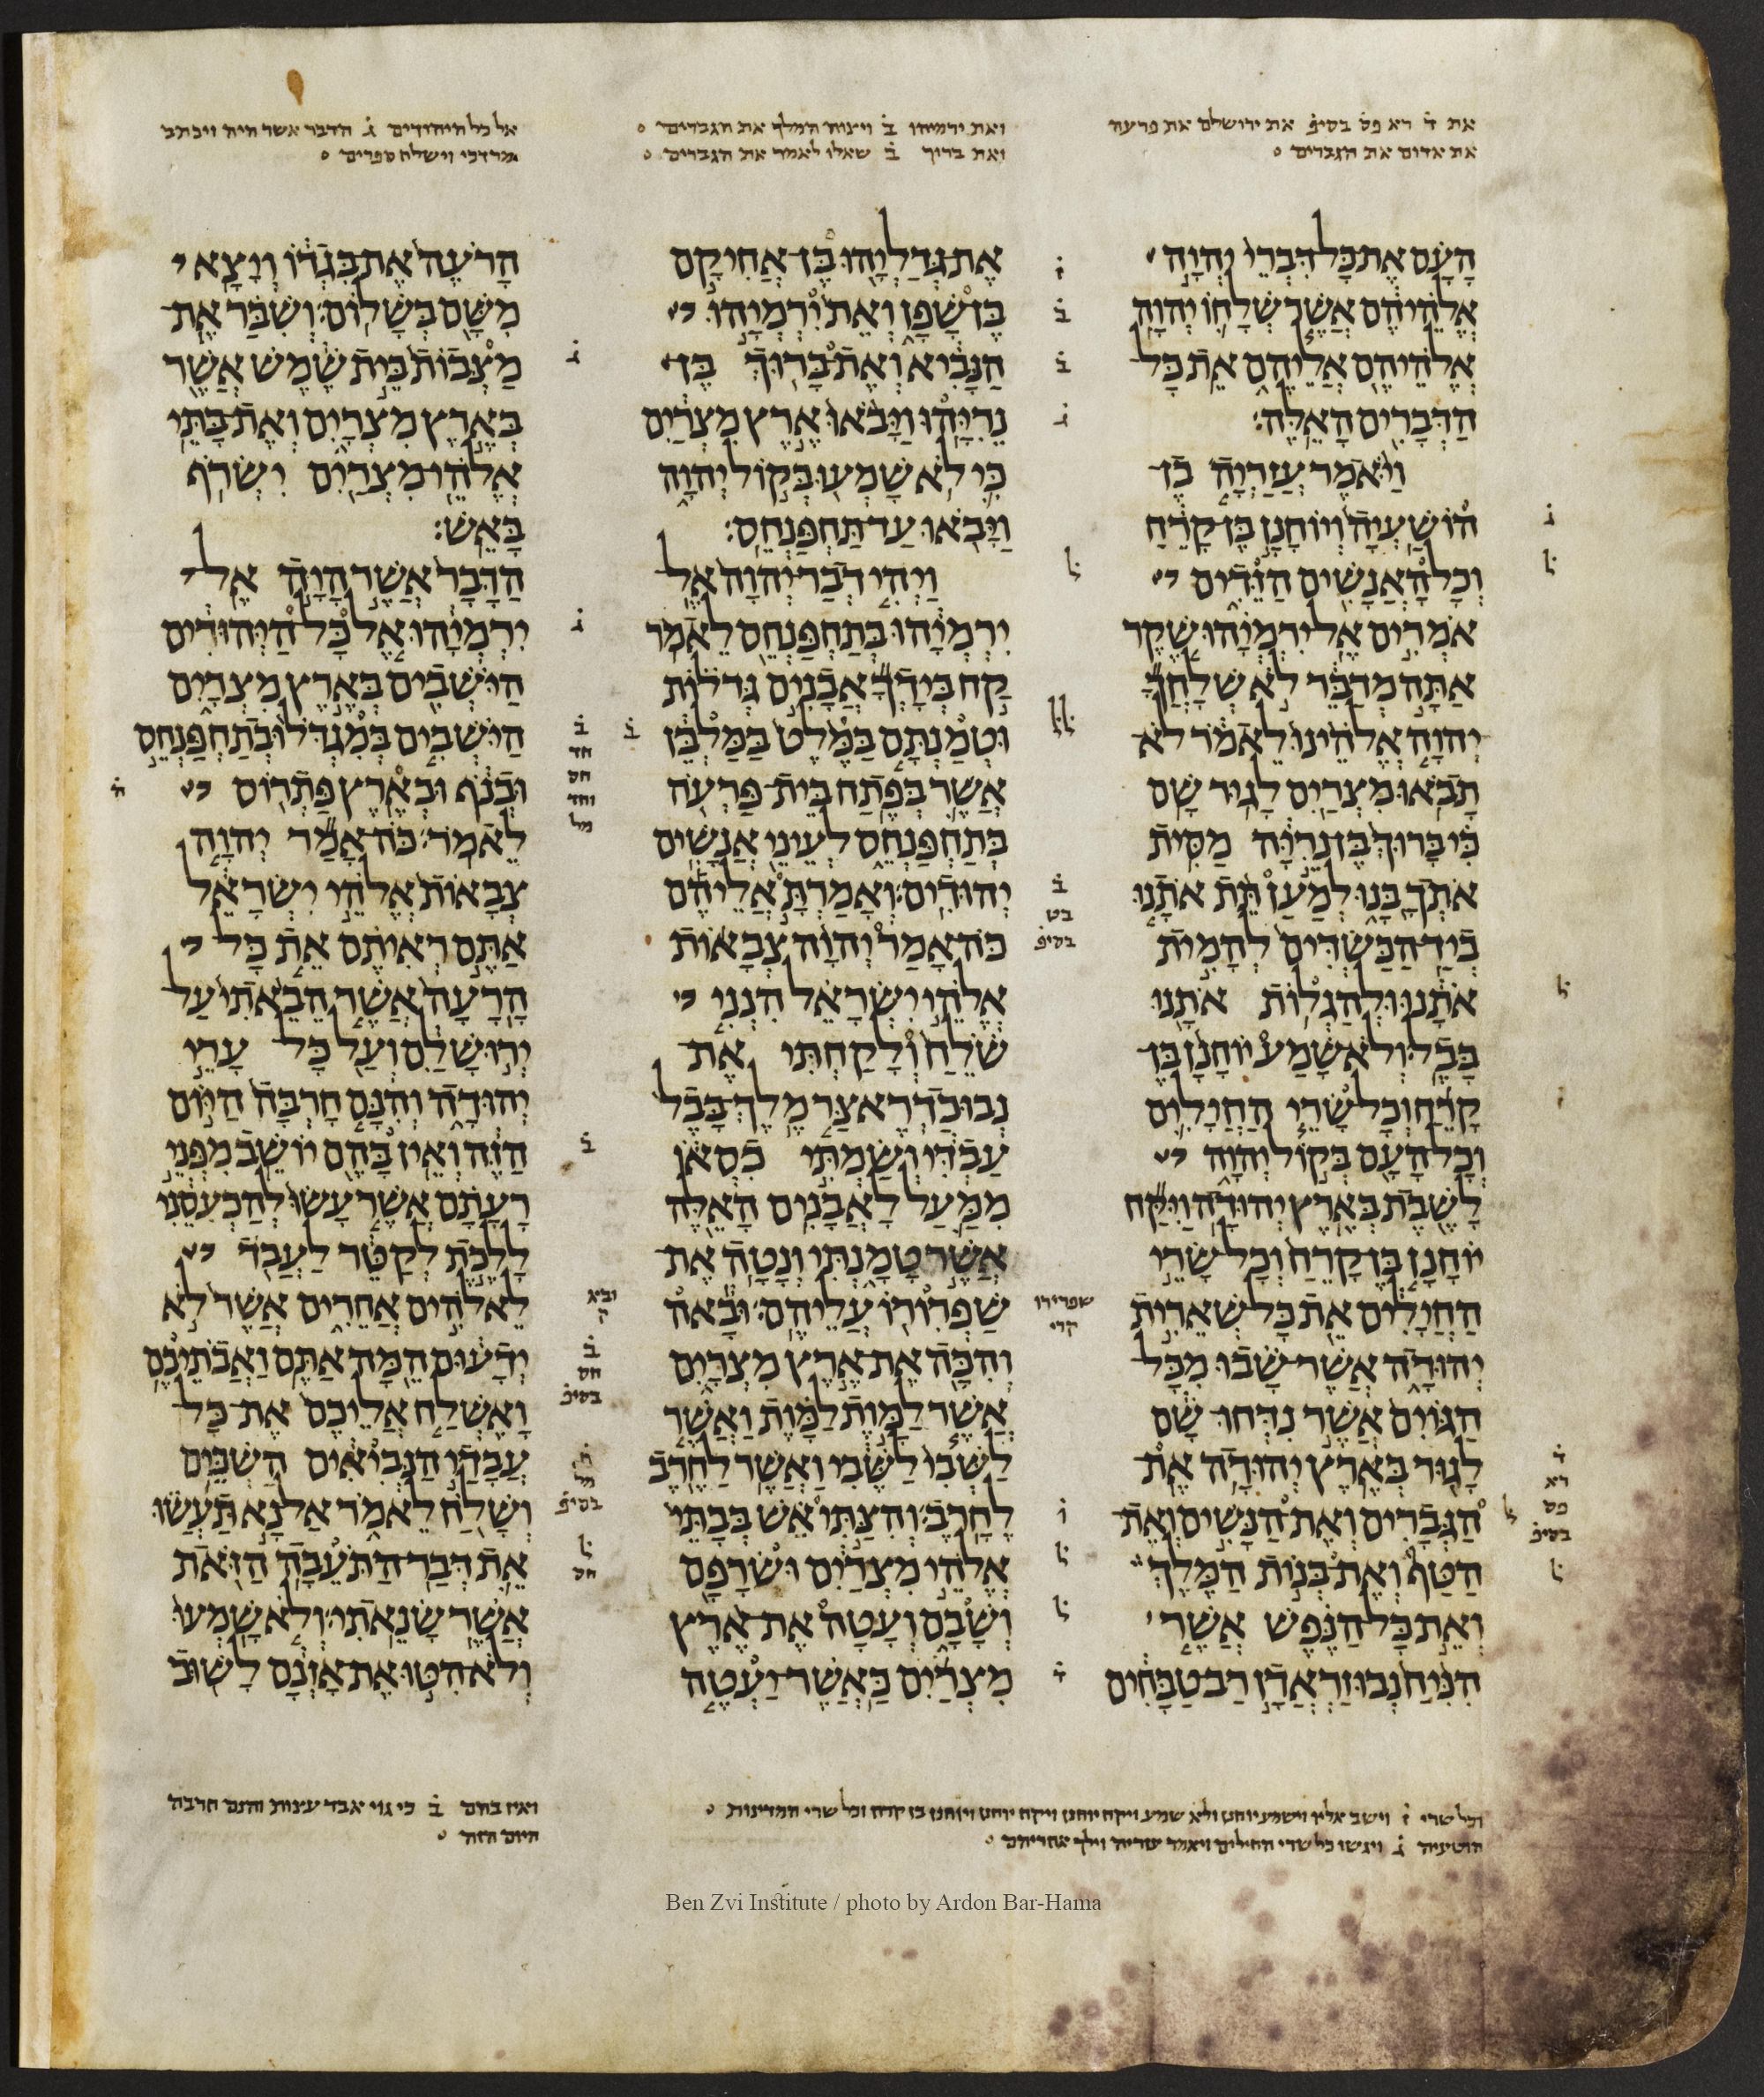 את ד̇ רא פס̇ בסיפ̇ את ירושלם את פרעה
את אדום את הגברים
ואת ירמיהו ב̇ ויצוה המלך את הגברים
ואת ברוך ב̇ שאלו לאמר את הגברים
אל כל היהודים ג̇ הדבר אשר היה ויכתב
מרדכי וישלח ספרים
הָעָם אֶת כָּל דִּבְרֵי יְהוָה
אֱלֹהֵיהֶם אֲשֶׁר שְׁלָחוֹ יְהוָה
אֱלֹהֵיהֶם אֲלֵיהֶם אֵת כָּל
הַדְּבָרִים הָאֵלֶּה׃
וַיֹּאמֶר עֲזַרְיָה בֶן
הוֹשַׁעְיָה וְיוֹחָנָן בֶּן קָרֵחַ
וְכָל הָאֲנָשִׁים הַזֵּדִים
אֹמְרִים אֶל יִרְמְיָהוּ שֶׁקֶר
אַתָּה מְדַבֵּר לֹא שְׁלָחֲךָ
יְהוָה אֱלֹהֵינוּ לֵאמֹר לֹא
תָבֹאוּ מִצְרַיִם לָגוּר שָׁם
כִּי בָּרוּךְ בֶּן נֵרִיָּה מַסִּית
אֹתְךָ בָּנוּ לְמַעַן תֵּת אֹתָנוּ
בְיַד הַכַּשְׂדִּים לְהָמִית
אֹתָנוּ וּלְהַגְלוֹת אֹתָנוּ
בָּבֶל׃ וְלֹא שָׁמַע יוֹחָנָן בֶּן
קָרֵחַ וְכָל שָׂרֵי הַחֲיָלִים
וְכָל הָעָם בְּקוֹל יְהוָה
לָשֶׁבֶת בְּאֶרֶץ יְהוּדָה׃ וַיִּקַּח
יוֹחָנָן בֶּן קָרֵחַ וְכָל שָׂרֵי
הַחֲיָלִים אֵת כָּל שְׁאֵרִית
יְהוּדָה אֲשֶׁר שָׁבוּ מִכָּל
הַגּוֹיִם אֲשֶׁר נִדְּחוּ שָׁם
לָגוּר בְּאֶרֶץ יְהוּדָה׃ אֶת
הַגְּבָרִים וְאֶת הַנָּשִׁים וְאֶת
הַטַּף וְאֶת בְּנוֹת הַמֶּלֶךְ
וְאֵת כָּל הַנֶּפֶשׁ אֲשֶׁר
הִנִּיחַ נְבוּזַרְאֲדָן רַב טַבָּחִים
אֶת גְּדַלְיָהוּ בֶּן אֲחִיקָם
בֶּן שָׁפָן וְאֵת יִרְמְיָהוּ
הַנָּבִיא וְאֶת בָּרוּךְ בֶּן
נֵרִיָּהוּ׃ וַיָּבֹאוּ אֶרֶץ מִצְרַיִם
כִּי לֹא שָׁמְעוּ בְּקוֹל יְהוָה
וַיָּבֹאוּ עַד תַּחְפַּנְחֵס׃
וַיְהִי דְבַר יְהוָה אֶל
יִרְמְיָהוּ בְּתַחְפַּנְחֵס לֵאמֹר׃
קַח בְּיָדְךָ אֲבָנִים גְּדֹלוֹת
וּטְמַנְתָּם בַּמֶּלֶט בַּמַּלְבֵּן
אֲשֶׁר בְּפֶתַח בֵּית פַּרְעֹה
בְּתַחְפַּנְחֵס לְעֵינֵי אֲנָשִׁים
יְהוּדִים׃ וְאָמַרְתָּ אֲלֵיהֶם
כֹּה אָמַר יְהוָה צְבָאוֹת
אֱלֹהֵי יִשְׂרָאֵל הִנְנִי
שֹׁלֵחַ וְלָקַחְתִּי אֶת
נְבוּכַדְרֶאצַּר מֶלֶךְ בָּבֶל
עַבְדִּי וְשַׂמְתִּי כִסְאוֹ
מִמַּעַל לָאֲבָנִים הָאֵלֶּה
אֲשֶׁר טָמָנְתִּי וְנָטָה אֶת
שַׁפְרִורוֹ עֲלֵיהֶם׃ וּבָאה
וְהִכָּה אֶת אֶרֶץ מִצְרָיִם
אֲשֶׁר לַמָּוֶת לַמָּוֶת וַאֲשֶׁר
לַשְּׁבִי לַשֶּׁבִי וַאֲשֶׁר לַחֶרֶב
לֶחָרֶב׃ וְהִצַּתִּי אֵשׁ בְּבָתֵּי
אֱלֹהֵי מִצְרַיִם וּשְׂרָפָם
וְשָׁבָם וְעָטָה אֶת אֶרֶץ
מִצְרַיִם כַּאֲשֶׁר יַעְטֶה
הָרֹעֶה אֶת בִּגְדוֹ וְיָצָא
מִשָּׁם בְּשָׁלוֹם׃ וְשִׁבַּר אֶת
מַצְּבוֹת בֵּית שֶׁמֶשׁ אֲשֶׁר
בְּאֶרֶץ מִצְרָיִם וְאֶת בָּתֵּי
אֱלֹהֵי מִצְרַיִם יִשְׂרֹף
בָּאֵשׁ׃
הַדָּבָר אֲשֶׁר הָיָה אֶל
יִרְמְיָהוּ אֶל כָּל הַיְּהוּדִים
הַיֹּשְׁבִים בְּאֶרֶץ מִצְרָיִם
הַיֹּשְׁבִים בְּמִגְדֹּל וּבְתַחְפַּנְחֵס
וּבְנֹף וּבְאֶרֶץ פַּתְרוֹס
לֵאמֹר׃ כֹּה אָמַר יְהוָה
צְבָאוֹת אֱלֹהֵי יִשְׂרָאֵל
אַתֶּם רְאִיתֶם אֵת כָּל
הָרָעָה אֲשֶׁר הֵבֵאתִי עַל
יְרוּשָׁלִַם וְעַל כָּל עָרֵי
יְהוּדָה וְהִנָּם חָרְבָּה הַיּוֹם
הַזֶּה וְאֵין בָּהֶם יוֹשֵׁב׃ מִפְּנֵי
רָעָתָם אֲשֶׁר עָשׂוּ לְהַכְעִסֵנִי
לָלֶכֶת לְקַטֵּר לַעֲבֹד
לֵאלֹהִים אֲחֵרִים אֲשֶׁר לֹא
יְדָעוּם הֵמָּה אַתֶּם וַאֲבֹתֵיכֶם׃
וָאֶשְׁלַח אֲלֵיכֶם אֶת כָּל
עֲבָדַי הַנְּבִיאִים הַשְׁכֵּים
וְשָׁלֹחַ לֵאמֹר אַל נָא תַעֲשׂוּ
אֵת דְּבַר הַתֹּעֵבָה הַזֹּאת
אֲשֶׁר שָׂנֵאתִי׃ וְלֹא שָׁמְעוּ
וְלֹא הִטּוּ אֶת אָזְנָם לָשׁוּב
שפרירו
קרי
וכל שרי ז̇ וישב אליו וישמע יוחנן ולא שמע ויקח יוחנן ויקח יוחנן ויוחנן בן קרח וכל שרי המדינות
הושעיה ג̇ ויגשו כל שרי החילים ויאמר עזריה וילך אחריהם
ואין בהם ב̇ כי גוי אבד עצות והנם חרבה
היום הזה
Ben Zvi Institute / photo by Ardon Bar-Hama